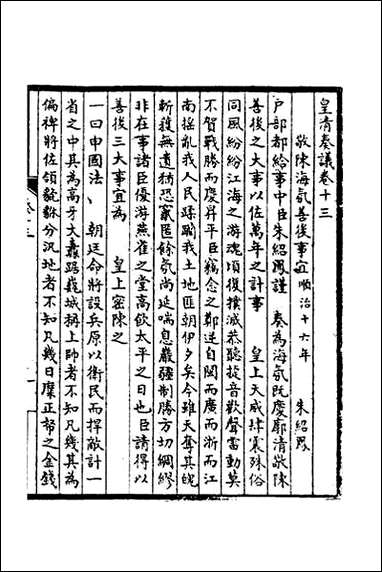 皇清奏議卷十三
敬陳海氛善後事宜 順治十六年 朱紹鳳
戶部都給事中臣朱紹鳳謹 奏為海氛既慶廓清敬陳
善後之大事以佐萬年之計事 皇上天威肆震殊俗
同風紛紛江海之游魂頃復撲滅恭聽捷音歡聲雷動莫
不賀戰勝而慶昇平臣竊念之鄭逆自閩而廣而浙而江
南搖亂我人民蹂躪我土地匪朝伊夕矣今雖天奪其魄
斬獲無遺猶恐竄匿餘氛尚延喘息嚴疆制勝方切綢繆
非在事諸臣優游燕雀之堂高飲太平之日也臣請得以
善後三大事宜為 皇上密陳之
一曰申國法 朝廷命將設兵原以衛民而捍敵計一
省之中其為高牙大纛踞巍城稱上帥者不知凡幾其為
偏裨將佐領貔貅分汎地者不知凡幾日糜正帑之金錢